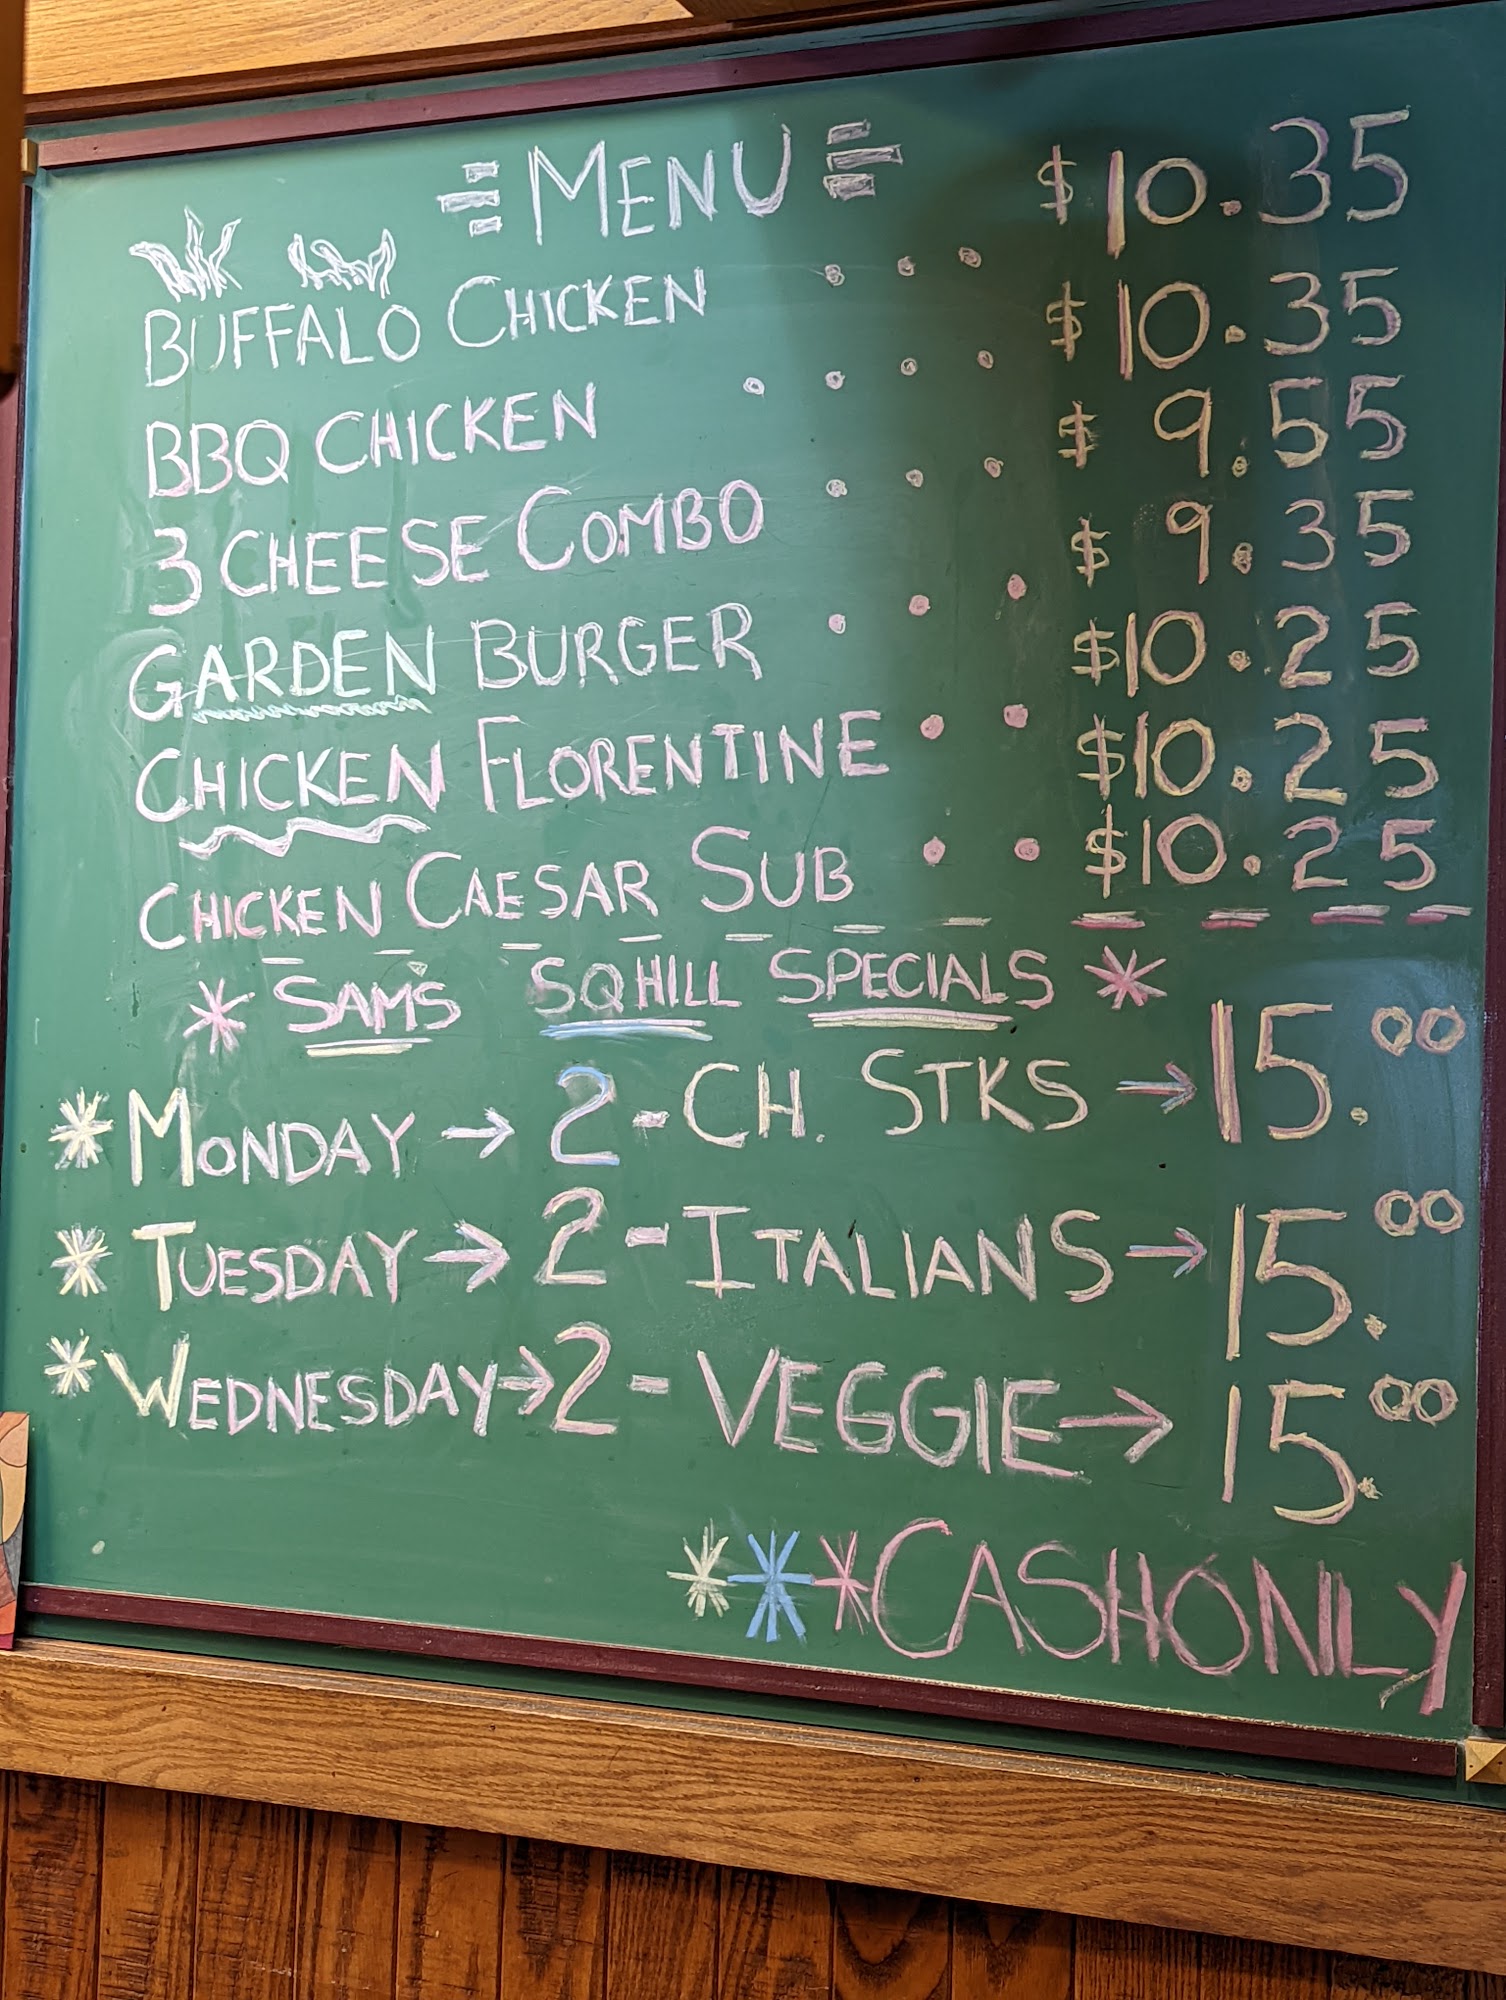 MENU $10.35
BUFFALO CHICKEN . . . $10.35
BBQ CHICKEN . . . . $9.55
3 CHEESE COMBO . . . $9.35
GARDEN BURGER . . . $10.25
CHICKEN FLORENTINE . . $10.25
CHICKEN CAESAR SUB . . $10.25
* SAM'S SQHILL SPECIALS *
* MONDAY → 2 - CH. STKS → 15.00
* TUESDAY → 2 - ITALIANS → 15.00
* WEDNESDAY → 2 - VEGGIE → 15.00
*** CASH ONLY